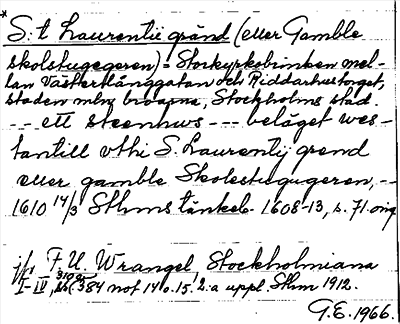 *
S:t Laurentii gränd (eller Gamble
skolstugegeren) = Storkyrkobrinken mel-
lan Västerlånggatan och Riddarhustorget,
staden mln broarna, Stockholms stad.
--- ett steenhws --- beläget wes-
tantill vthi S. Laurentij grend
eller gamble Skolestugugeren, --
1610 14/3 Sthms tänkeb. 1608-13, s. 71. orig
jfr F. U. Wrangel, Stockholmiana
I-IV, s. 310 o. 384 not 14 o. 15, 2:a uppl. Sthm 1912.
G.E. 1966.